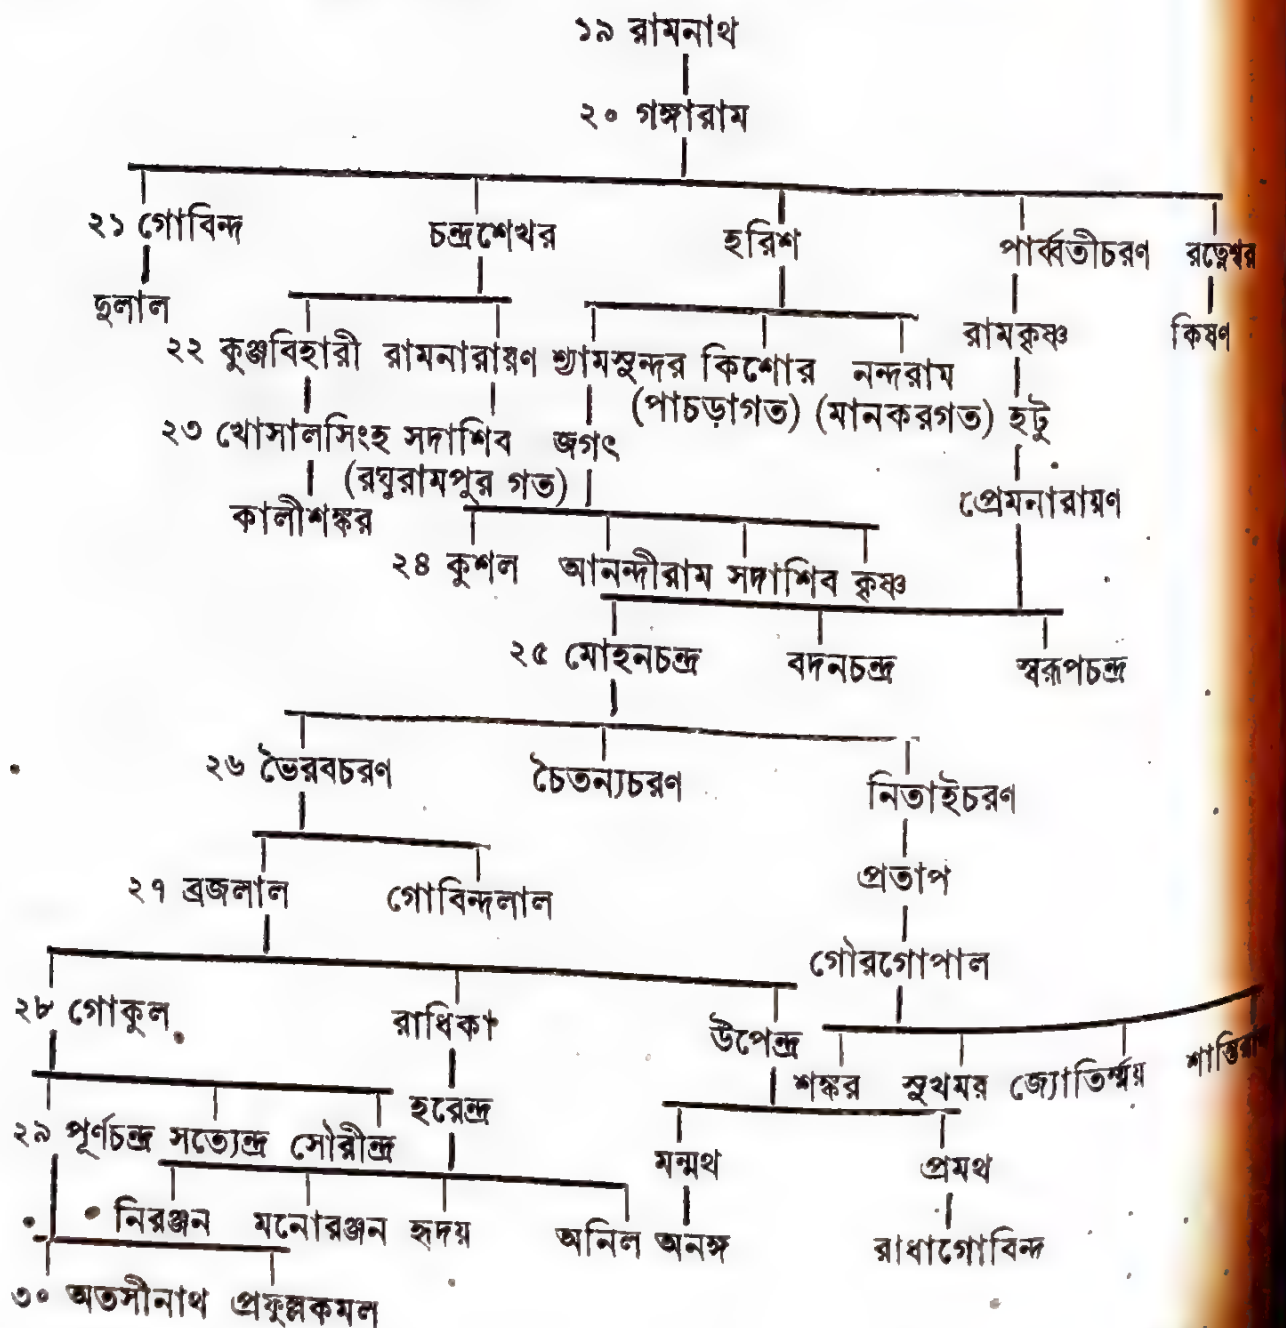 ১৯ রামনাথ
২০ গঙ্গারাম
২১ গোবিন্দ চন্দ্রশেখর হরিশ পার্ব্বতীচরণ রত্নেশ্বর
দুলাল রামকৃষ্ণ কিষণ
২২ কুঞ্জবিহারী রামনারায়ণ শ্যামসুন্দর কিশোর নন্দরাম
(পাচড়াগত) (মানকরগত) হটু
২৩ খোসালসিংহ সদাশিব জগৎ
(রঘুরামপুর গত)
কালীশঙ্কর প্রেমনারায়ণ
২৪ কুশল আনন্দীরাম সদাশিব কৃষ্ণ
২৫ মোহনচন্দ্র বদনচন্দ্র স্বরূপচন্দ্র
২৬ ভৈরবচরণ চৈতন্যচরণ নিতাইচরণ
২৭ ব্রজলাল গোবিন্দলাল প্রতাপ
গৌরগোপাল
২৮ গোকুল রাধিকা উপেন্দ্র
শঙ্কর সুখমর জ্যোতির্ম্ময়
২৯ পূর্ণচন্দ্র সত্যেন্দ্র সৌরীন্দ্র হরেন্দ্র
মন্মথ প্রমথ
নিরঞ্জন মনোরঞ্জন হৃদয় অনিল অনঙ্গ রাধাগোবিন্দ
৩০ অতসীনাথ প্রফুল্লকমল